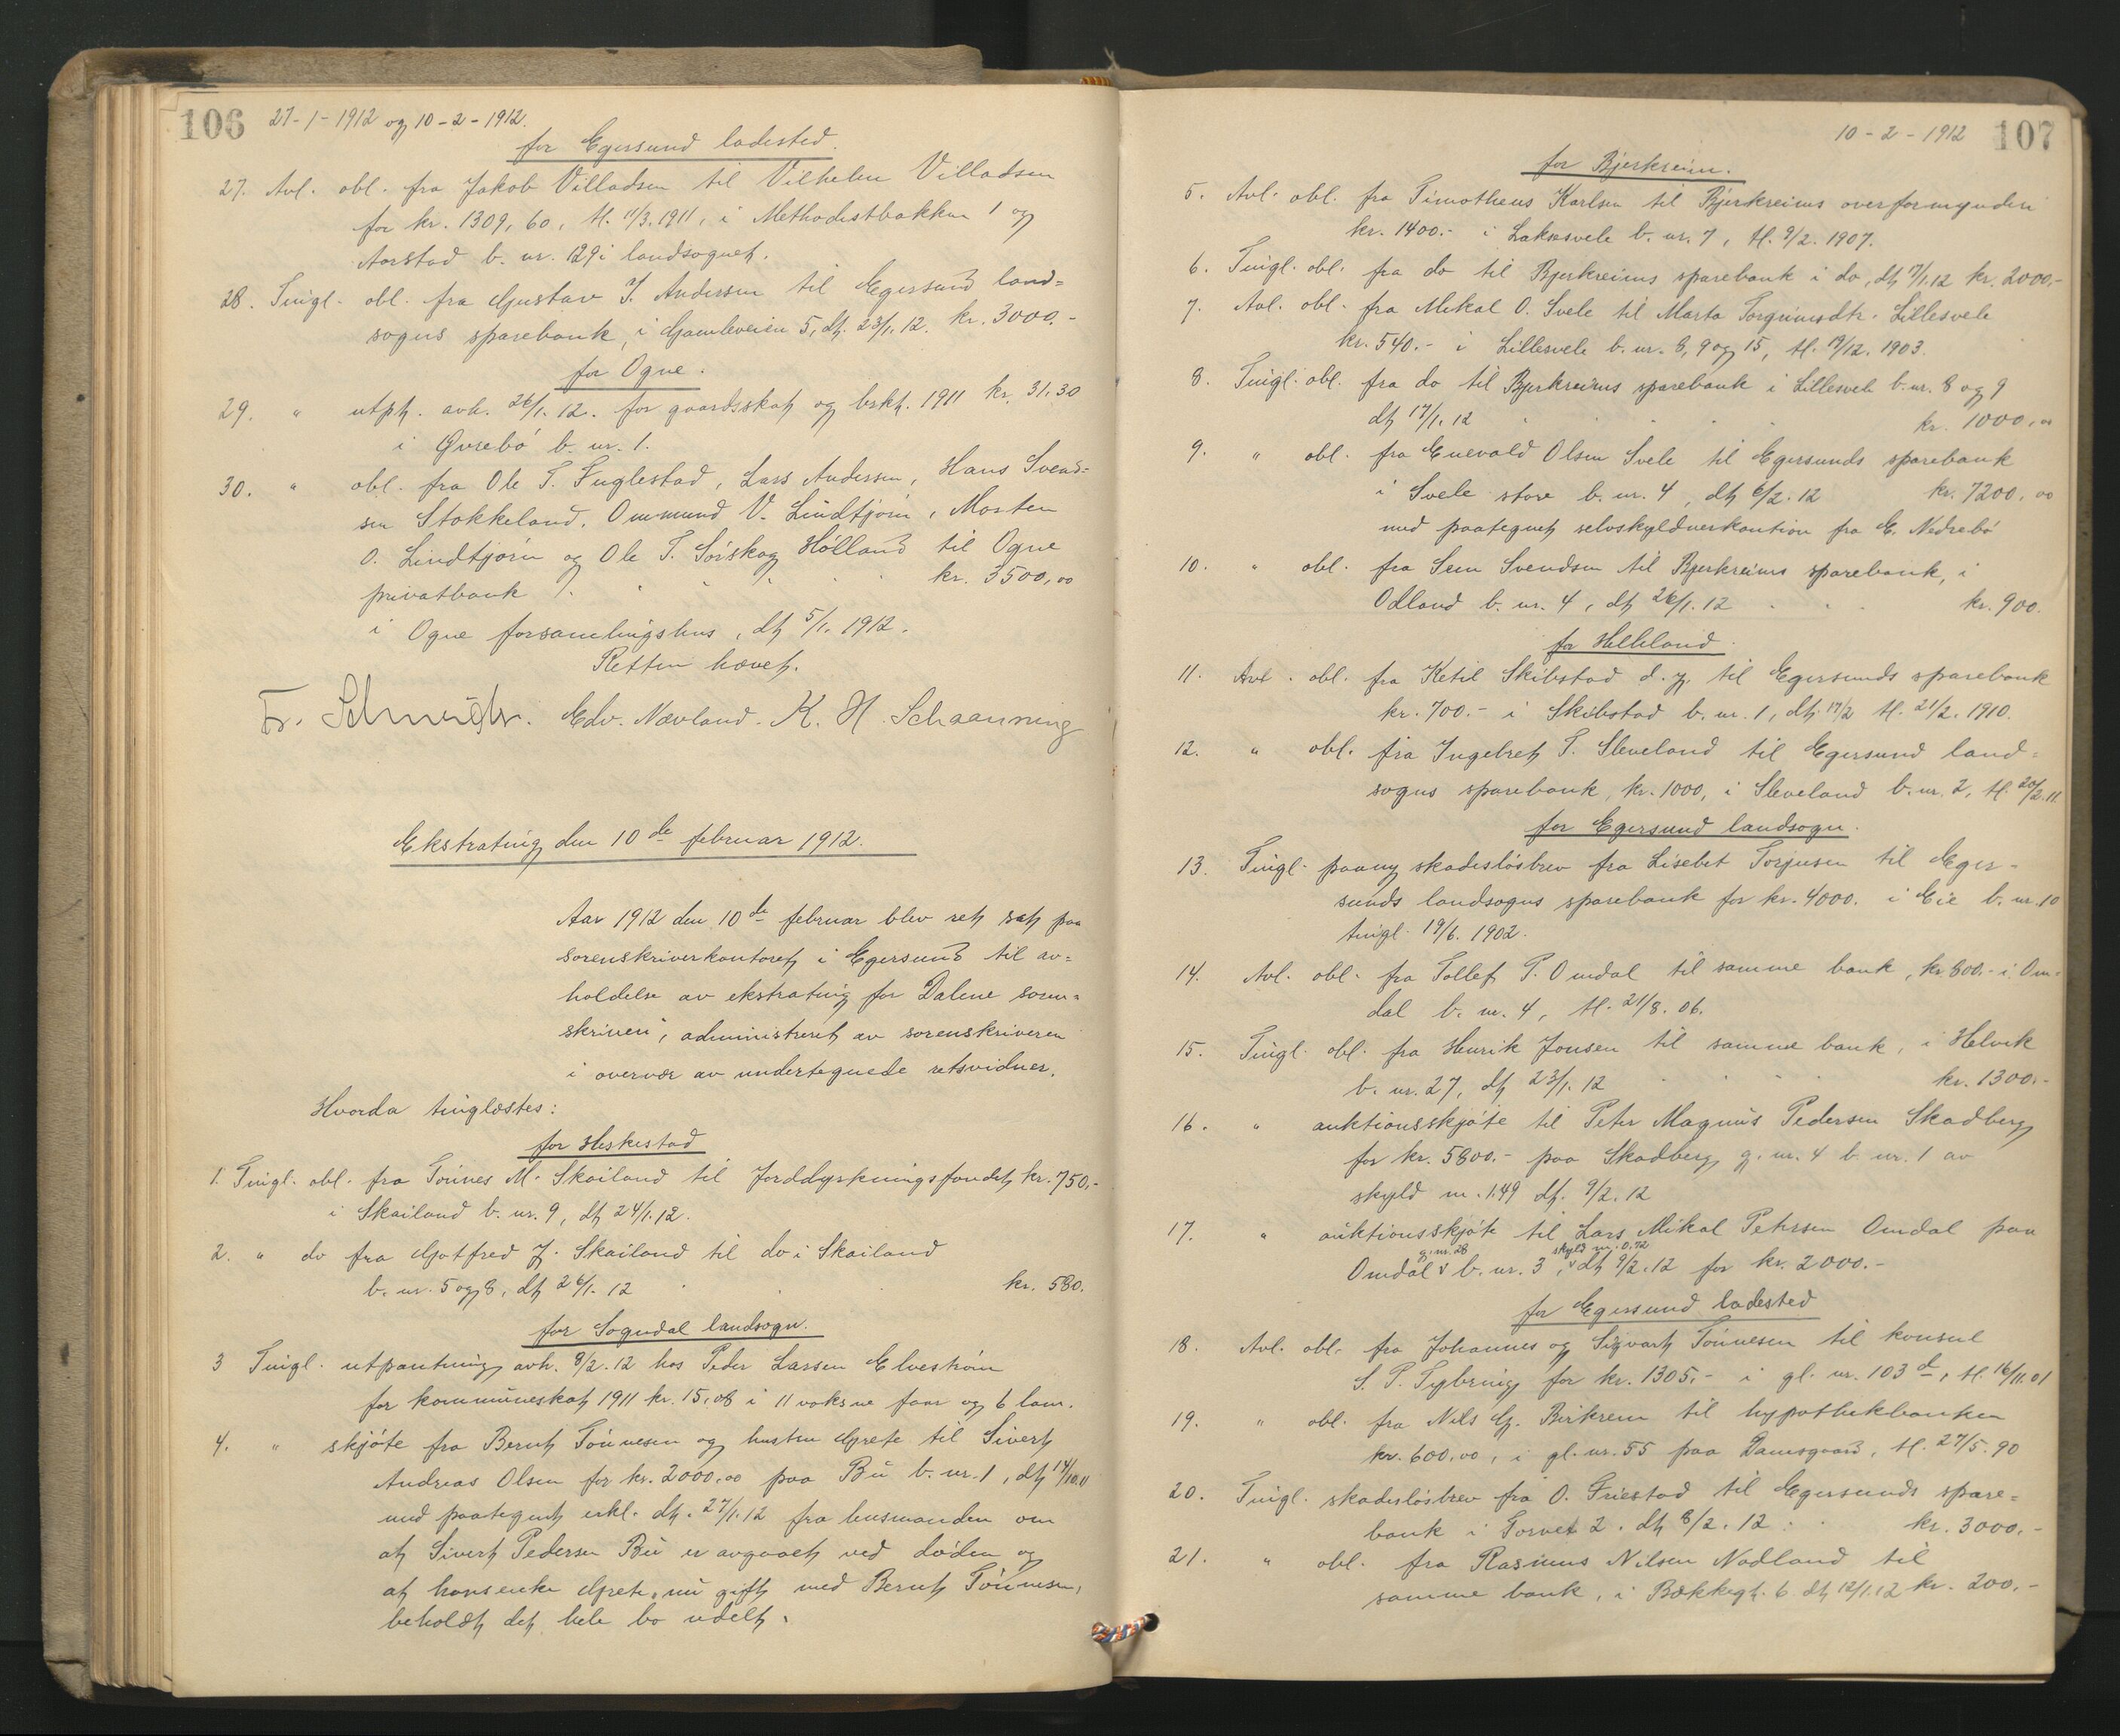 106 27-1-1912 og 10-2-1912.
for Egersund ladested.
27. Avl. obl. fra Jakob Villadsen til Vilhelm Villadsen
for kr. 1309,60, tl. 11/3.1911, i Methodistbakken 1 og
Aarstad b. nr. 129 i landsognet.
28. Tingl. obl. fra Gustav T. Andersen til Egersund land=
sogns sparebank, i Gamleveien 5, dt. 23/1.12. kr. 3000.-
for Ogne.
29. " utpt. avh. 26/1.12. for gaardsskat og brkt. 1911 kr. 31.30
i Qvrebö b. nr. 1.
30. " obl. fra Ole T. Fuglestad, Lars Andersen, Hans Svend=
sen Stokkeland, Ommund V. Lindtjørn, Morten
O. Lindtjørn og Ole T. Sørskog Hølland til Ogne
privatbank kr. 3500,00
i Ogne forsamlingshus, dt 5/1.1912.
Retten hævet.
Fr. Schmidt. Edv. Nævland. K. H. Schaanning
Ekstrating den 10de februar 1912.
Aar 1912 den 10de februar blev ret sat paa
sorenskriverkontoret i Egersund til av=
holdelse av ekstrating for Dalene soren=
skriveri, administreret av sorenskriveren
i overvær av undertegnede retsvidner.
Hvorda tinglæstes:
for Heskestad
1. Tingl. obl. fra Tønnes M. Skailand til Jorddyrkningsfondet kr. 750.-
i Skailand b. nr. 9, dt 24/1.12.
2. " do fra Gotfred J. Skailand til do i Skailand
b. nr. 5 og 8, dt 26/1.12 kr. 580.
for Sogndal landsogn.
3 Tingl. utpantning avh. 8/2.12 hos Peder Larsen Elvestrøm
for kommuneskat 1911 kr. 15,08 i 11 voksne faar og 6 lam.
4. " skjøte fra Bernt Tønnesen og hustru Grete til Sivert
Andreas Olsen for kr. 2000.00 paa Bu b. nr. 1, dt 14/10.11
med paategnet erkl. dt. 27/1.12 fra lensmanden om
at Sivert Pedersen Bu er avgaaet ved døden og
at hans enke Grete, nu gift med Bernt Tønnesen,
beholdt det hele bo udelt.
10-2-1912 107
for Bjerkreim.
5. Avl. obl. fra Timotheus Karlsen til Bjerkreims overformynderi
kr. 1400.- i Laksesvele b. nr. 7, tl. 9/2.1907.
6. Tingl. obl. fra do til Bjerkreims sparebank i do, dt 17/1.12 kr. 2000.-
7. Avl. obl. fra Mikal O. Svele til Marta Torgrimsdtr. Lillesvele
kr. 540.- i Lillesvele b. nr. 8, 9 og 15, tl. 19/12.1903.
8. Tingl. obl. fra do til Bjerkreims sparebank i Lillesvele b. nr. 8 og 9
dt 17/1.12 kr. 1000,00
9. " obl. fra Enevald Olsen Svele til Egersunds sparebank
i Svele store b. nr. 4, dt 6/2.12 kr. 7200,00
med paategnet selvskyldnerkaution fra E. Nedrebö
10. " obl. fra Sem Svendsen til Bjerkreims sparebank, i
Odland b. nr. 4, dt 26/1.12 kr. 900.
for Helleland.
11. Avl. obl. fra Ketil Skibstad d. y. til Egersunds sparebank
kr. 700.- i Skibstad b. nr. 1, dt. 17/2 tl. 21/2.1910.
12. " obl. fra Ingebret T. Sleveland til Egersund land=
sogns sparebank, kr. 1000, i Sleveland b. nr. 2, tl. 20/2.11.
for Egersund landsogn.
13. Tingl. paany skadesløsbrev fra Lisebet Torjusen til Eger-
sunds landsogns sparebank for kr. 4000. i Eie b. nr. 10
tingl. 19/6.1902.
14. Avl. obl. fra Tollef P. Omdal til samme bank, kr. 800.- i Om-
dal b. nr. 4, tl. 21/8.06.
15. Tingl. obl. fra Henrik Jonsen til samme bank, i Helvik
b. nr. 27, dt 23/1.12 kr. 1300.-
16. " auktionsskjøte til Peter Magnus Pedersen Skadberg
for kr. 5800.- paa Skadberg, g. nr. 4 b. nr. 1 av
skyld m. 1.49 dt. 9/2.12
17. " auktionsskjøte til Lars Mikal Petersen Omdal paa
g. nr. 28 skyld m. 0.72
Omdal v b. nr. 3, v dt 9/2.12 for kr. 2000.-
for Egersund ladested
18. Avl. obl. fra Johannes og Sigvart Tønnesen til konsul
S. P. Tybring for kr. 1305.- i gl. nr. 103 d, tl. 16/11.01
19. " obl. fra Nils G. Birkrem til hypothekbanken
kr. 600,00, i gl. nr. 55 paa Damsgaard, tl. 27/5.90
20. Tingl. skadesløsbrev fra O. Friestad til Egersunds spare=
bank i Torvet 2. dt 8/2.12 kr. 3000.-
21. " obl. fra Rasmus Nilsen Nodland til
samme bank, i Bækkegt. 6 dt 12/1.12 kr. 200.-